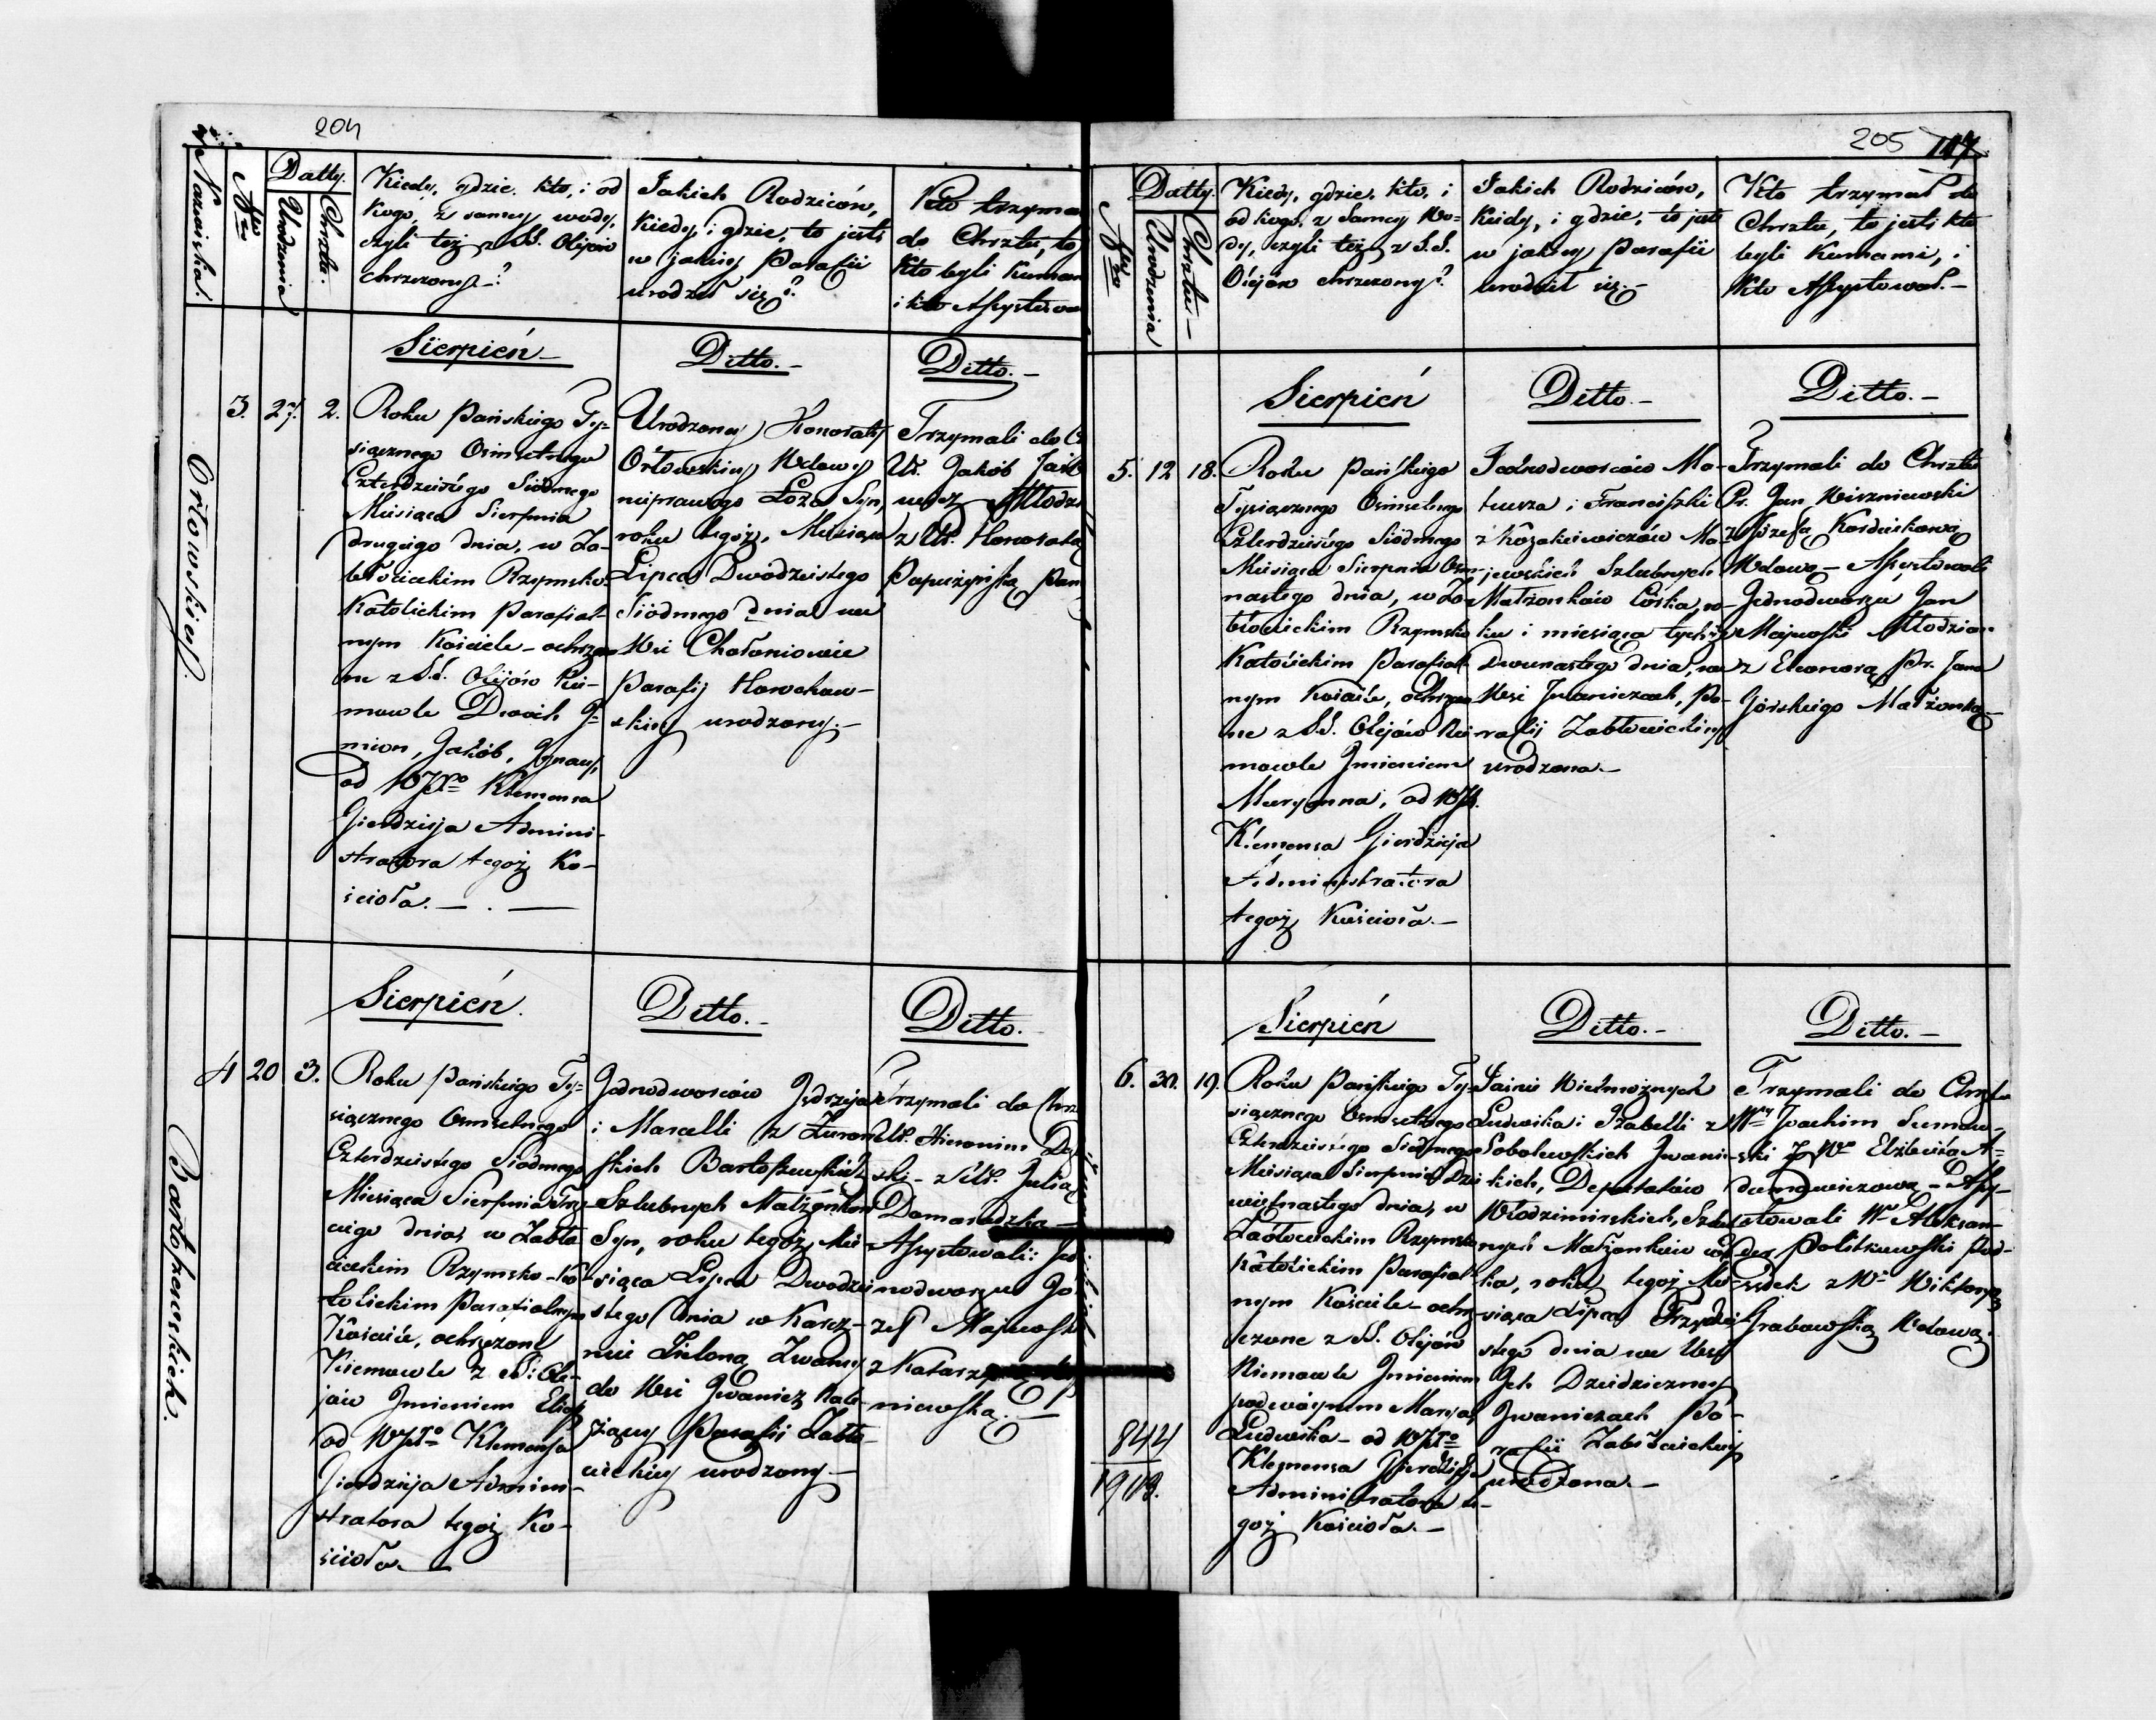 204
Nazwiska.
No
Datty.
Urodzenia
Chrztu.
Kiedy, gdzie, kto, i od
kogo, z samey wody,
czyli też z SS. Olejow
chrzczony?
Jakich Rodziców,
Kiedy, i gdzie, to jest
w jakiey Parafii
urodził się?
Kto trzyma
do Chrztu, to
Kto byli Kumam
i kto Assystowa
Orłowskich.
Sierpień
3. 27. 2.
Roku Pańskiego Ty-
siącznego Osmsetnego
Czterdziestego Siódmego
Miesiąca Sierpnia
drugiego dnia, w Za-
błocieckim Rzymsko-
Katolickim Parafial-
nym Kościele ochrzczo-
ne z S.S. Olejów Nie-
mowle Dwoch I-
mion, Jakób, Ignacy,
od WJX Klemensa
Gierdzieja Admini-
stratora tegoż Ko-
ścioła.
Ditto.
Urodzoney Honoraty
Orłowskiey Wdowy
nieprawego Łoża Syn,
roku tegoż, Miesiąca
Lipca Dwódziestego
Siódmego dnia we
Wsi Chołoniowie
Parafij Horochow-
skiey urodzony.
Ditto.
Trzymali do C
Ur. Jakób
z Ur. Honoratą
Papużyńską Pan
Bartoszewskich.
Sierpień.
4 20 3.
Roku Pańskiego Ty-
siącznego Osmsetnego
Czterdziestego Siódmego
Miesiąca Sierpnia Trze-
ciego dnia, w Zabło-
cieckim Rzymsko-Ka-
tolickim Parafialnym
Kościele, ochrzczone
Niemowle z SS: Ole-
jów Jmieniem Eliasz
od WJX Klemensa
Gierdzieja Admini-
stratora tegoż Ko-
ścioła.
Ditto.
Jednodworców Jędrzeja
i Marcelli z Żuraw-
skich Bartoszewskich
Szlubnych Małżonków
Syn, roku tegoż Mie-
siąca Lipca Dwodzie-
stego dnia w Karcz-
mie Zieloną Zwaney
do Wsi Jwanicz Nale-
żącey Parafii Zabło-
cieckiey urodzony.
Ditto.
Trzymali do Chrz
Ur. Hieronim
ski z Ur. Julią
Domaradzką
Assystowali: Je
nodworzec Jó
zef Majewski
z Katarzyną
niewską.
205
117
No
Datty.
Urodzenia
Chrztu.
Kiedy, gdzie, kto, i
od kogo, z Samey Wo-
dy, czyli też z S.S.
Olejów chrzczony?
Jakich Rodziców,
Kiedy, i gdzie, to jest
w jakiey Parafii
urodził się.
Kto trzymał do
Chrztu, to jest kto
byli Kumami, i
Kto Assystował.
Sierpień
5. 12 18.
Roku Pańskiego
Tysiącznego Osmsetnego
Czterdziestego Siódmego
Miesiąca Sierpnia Osm-
nastego dnia, w Za-
błocieckim Rzymsko
Katolickim Parafial-
nym Kościele, ochrzczo-
ne z S.S. Olejów Nie-
mowle Jmieniem
Maryanna, od WJX.
Klemensa Gierdzieja
Administratora
tegoż Kościoła.
Ditto.
Jednodworców Ma-
teusza i Franciszki
z Kozakiewiczów Ma-
jewskich Szlubnych
Małżonków Córka, ro-
ku i miesiąca tychże
Dwunastego dnia, we
Wsi Jwaniczach, Pa-
rafij Zabłocieckiey
urodzona.
Ditto.
Trzymali do Chrztu
Pr. Jan Wiszniewski
z Józefą Kordaskową
Wdową Assystowali
Jednodworzec Jan
Majewski Młodzian
z Eleonorą Pr. Jana
Górskiego Małżonką
Sierpień
6. 30. 19.
Roku Pańskiego Ty-
siącznego Osmsetnego
Czterdziestego Siódmego
Miesiąca Sierpnia Dzie-
więtnastego dnia, w
Zabłocieckim Rzymsko
Katolickim Parafial-
nym Kościele ochrz-
czone z SS. Olejów
Niemowle Jmieniem
podwóynem Marya,
Ludwika od WJX
Klemensa Gierdzieja
Administratora te-
goż Kościoła.
844
1903.
Ditto.
Jaśnie Wielmożnych
Ludwika i Izabelli z
Sobolewskich Jwanic-
kich, Deputatów
Włodzimirskich, Szlub-
nych Małżonków cór-
ka, roku tegoż Mie-
siąca Lipca Trzydzie-
stego dnia we Wsi
Jch Dziedziczney
Jwaniczach Pa-
rafii Zabłocieckiey
urodzona.
Ditto.
Trzymali do Chrztu
Wny Joachim
ski z Wą Elżbietą A-
damowiczową Assy-
stowali W. Aleksan-
der Podsę-
dek z Wą Wiktoryą
Grabowską Wdową.